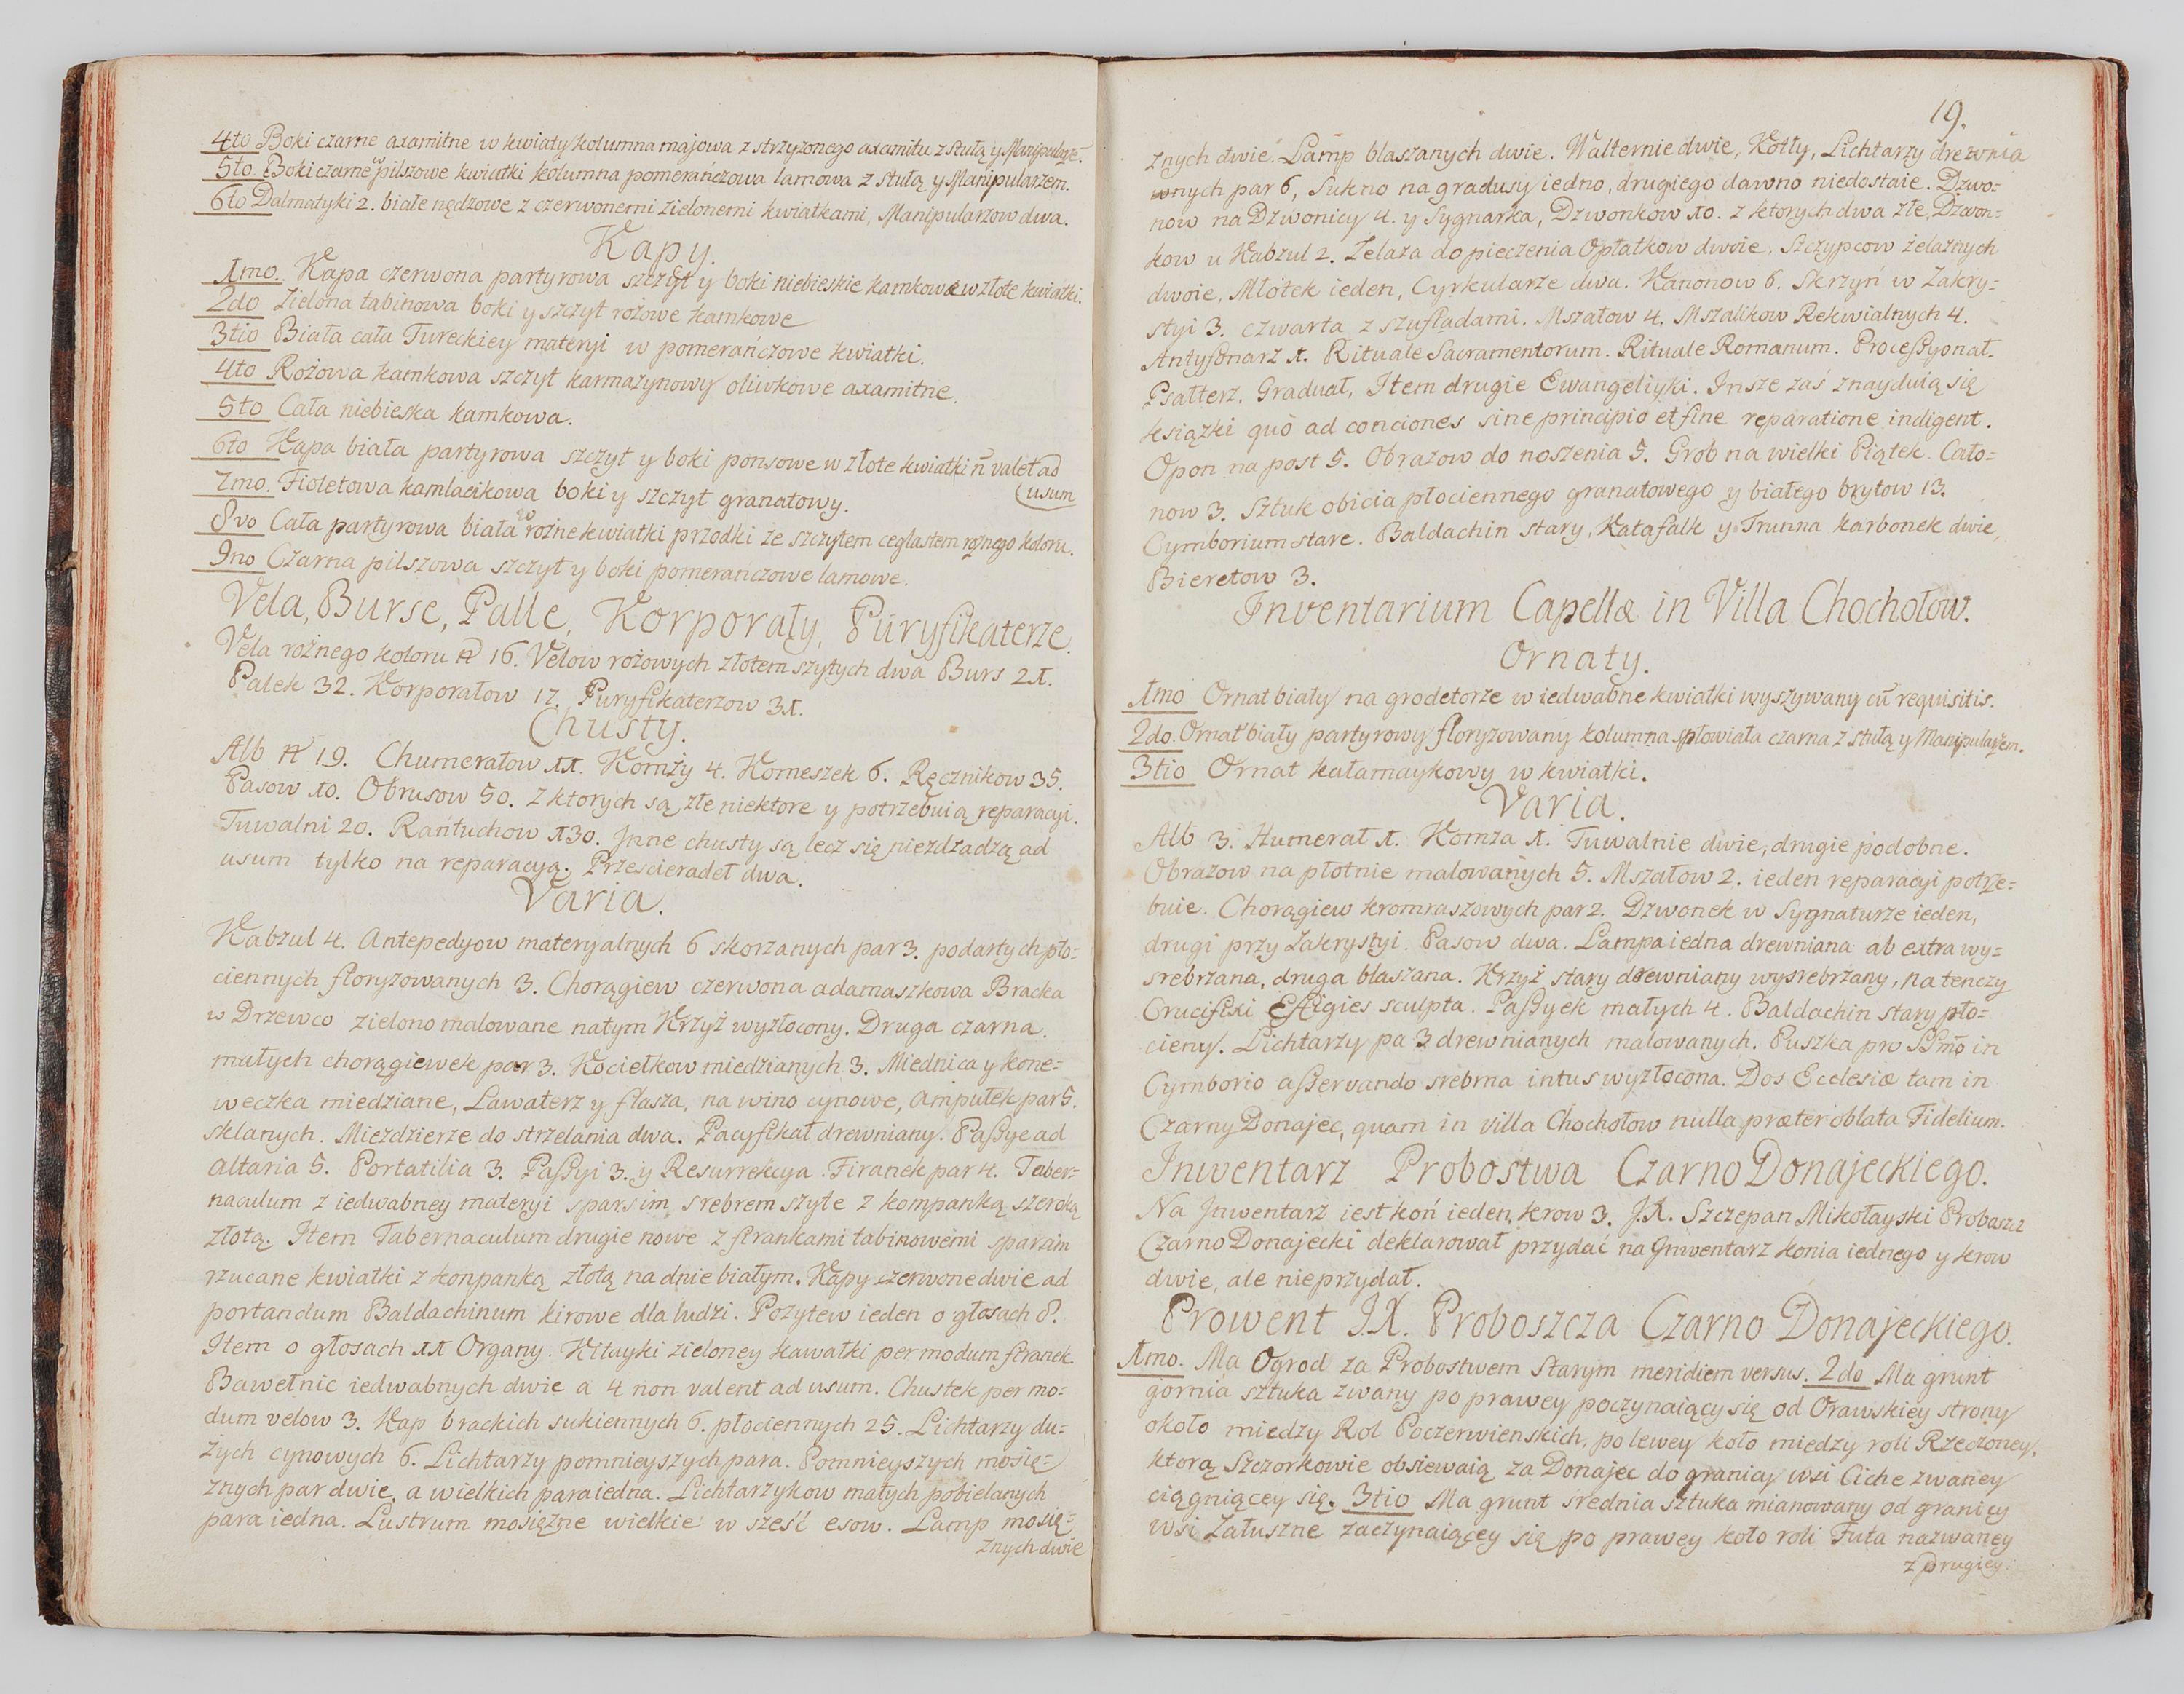 4to Boki czarne axamitne w kwiaty kolumna majowa z strzyzonego axamitu z stułą y Manipularze.
5to Boki czarne w pilszowe kwiatki kolumna pomerańczowa lamowa z stułą y Manipularzem.
6to Dalmatyki 2. białe nędzowe z czerwonemi zielonemi kwiatkami, Manipularzow dwa.
Kapy.
1mo. Kapa czerwona partyrowa szczyt y boki niebieskie kamkowe w złote kwiatki.
2do Zielona tabinowa boki y szczyt rożowe kamkowe
3tio Biała cała Tureckiey materyi w pomerańczowe kwiatki.
4to Rożowa kamkowa szczyt karmazynowy oliwkowe axamitne.
5to Cała niebieska kamkowa.
6to Kapa biała partyrowa szczyt y boki ponsowe w złote kwiatki n̄ valet ad
usum
7mo. Fioletowa kamlacikowa boki y szczyt granatowy.
8vo Cała partyrowa biała w rożne kwiatki przodki że szczytem ceglastem rożnego koloru.
9no Czarna pilszowa szczyt y boki pomerańczowe lamowe.
Vela, Burse, Palle, Korporały, Puryfikaterze.
Vela rożnego koloru N 16. Velow rożowych złotem szytych dwa Burs 21.
Palek 32. Korporałow 17. Puryfikaterzow 31.
Chusty.
Alb N 19. Chumerałow 11. Komży 4. Komeszek 6. Ręcznikow 35.
Pasow 10. Obrusow 50. z ktorych są złe niektore y potrzebuią reparacyi.
Tuwalni 20. Rańtuchow 130. Jnne chusty są lecz się niezdzadzą ad
usum tylko na reparacyą. Przescieradeł dwa.
Varia.
Kabzul 4. Antepedyow materyalnych 6 skorzanych par 3. podartych pło-
ciennych floryzowanych 3. Chorągiew czerwona adamaszkowa Bracka
w Drzewco zielono malowane natym Krzyż wyzłocony. Druga czarna.
małych chorągiewek par 3. Kociełkow miedzianych 3. Miednica y kone-
weczka miedziane, Lawaterz y flasza, na wino cynowe, Ampułek par 5.
sklanych. Mieździerze do strzelania dwa. Pacyfikał drewniany. Paßye ad
Altaria 5. Portatilia 3. Paßyi 3. y Resurrekcya. Firanek par 4. Taber-
naculum z iedwabney materyi sparsim srebrem szyte z kompanką szeroką
złotą. Item Tabernaculum drugie nowe z firankami tabinowemi sparsim
rzucane kwiatki z konpanką złotą na dnie białym. Kapy czerwone dwie ad
portandum Baldachinum kirowe dla ludzi. Pozytew ieden o głosach 8.
Item o głosach 11 Organy. Kitayki zieloney kawałki per modum firanek.
Bawełnic iedwabnych dwie a 4 non valent ad usum. Chustek per mo-
dum velow 3. Kap brackich sukiennych 6. płociennych 25. Lichtarzy du-
żych cynowych 6. Lichtarzy pomnieyszych para. Pomnieyszych mosię-
znych par dwie, a wielkich para iedna. Lichtarzykow małych pobielanych
para iedna. Lustrum mosiężne wielkie w sześć esow. Lamp mosię-
znych dwie
19.
znych dwie. Lamp blaszanych dwie. Walternie dwie, Kotły, Lichtarzy drewnia
wnych par 6, Sukno na gradusy iedno, drugiego dawno niedostaie. Dzwo-
now na Dzwonicy 4. y Sygnarka, Dzwonkow 10. z ktorych dwa złe, Dzwon-
kow u Kabzul 2. Żelaza do pieczenia Opłatkow dwoie. Szczypcow żelaznych
dwoie, Młotek ieden, Cyrkularze dwa. Kanonow 6. Skrzyń w Zakry-
styi 3. czwarta z szufladami. Mszałow 4. Mszalikow Rekwialnych 4.
Antyfonarz 1. Rituale Sacramentorum. Rituale Romanum. Proceßyonał.
Psałterz, Graduał, Item drugie Ewangeliyki. Insze zaś znayduią się
książki quō ad conciones sine principio et fine reparatione indigent.
Opon na post 5. Obrazow do noszenia 5. Grob na wielki Piątek. Cało-
now 3. Sztuk obicia płociennego granatowego y białego brytow 13.
Cymborium stare. Baldachin stary, Katafalk y Trunna karbonek dwie,
Bieretow 3.
Inventarium Capellæ in Villa Chochołow.
Ornaty.
1mo Ornat biały na grodetorze w iedwabne kwiatki wyszywany cū requisitis.
2do. Ornat biały partyrowy floryzowany kolumna spłowiała czarna z stułą y Manipularzem.
3tio Ornat kałamaykowy w kwiatki.
Varia.
Alb 3. Humerał 1. Komża 1. Tuwalnie dwie, drugie podobne.
Obrazow na płotnie malowanych 5. Mszałow 2. ieden reparacyi potrze-
buie. Chorągiew kromraszowych par 2. Dzwonek w Sygnaturze ieden,
drugi przy Zakrystyi. Pasow dwa. Lampa iedna drewniana ab extra wy-
srebrzana, druga blaszana. Krzyż stary drewniany wysrebrzany, na tenczy
Crucifixi Effigies sculpta. Paßyek małych 4. Baldachin stary pło-
cieny. Lichtarzy pa 3 drewnianych malowanych. Puszka pro SSm̄o in
Cymborio aßervando srebrna intus wyzłocona. Dos Ecclesiæ tam in
Czarny Donajec, quam in villa Chochołow nulla præter oblata Fidelium.
Inwentarz Probostwa Czarno Donajeckiego.
Na Jnwentarz iest koń ieden, krow 3. J.X. Szczepan Mikołayski Probaszz
Czarno Donajecki deklarował przydać na Jnwentarz konia iednego y krow
dwie, ale nieprzydał.
Prowent J.X. Proboszcza Czarno Donajeckiego.
1mo. Ma Ogrod za Probostwem Starym meridiem versus. 2do Ma grunt
gornia sztuka zwany po prawey poczynaiący się od Orawskiey strony
około miedzy Rol Poczerwienskich, po lewey koło miedzy roli Rzeczoney,
ktorą Szczorkowie obsiewaią za Donajec do granicy wsi Ciche zwaney
ciągniącey się. 3tio Ma grunt srednia sztuka mianowany od granicy
wsi Załuszne zaczynaiącey się po prawey koło roli Futa nazwaney
z drugiey